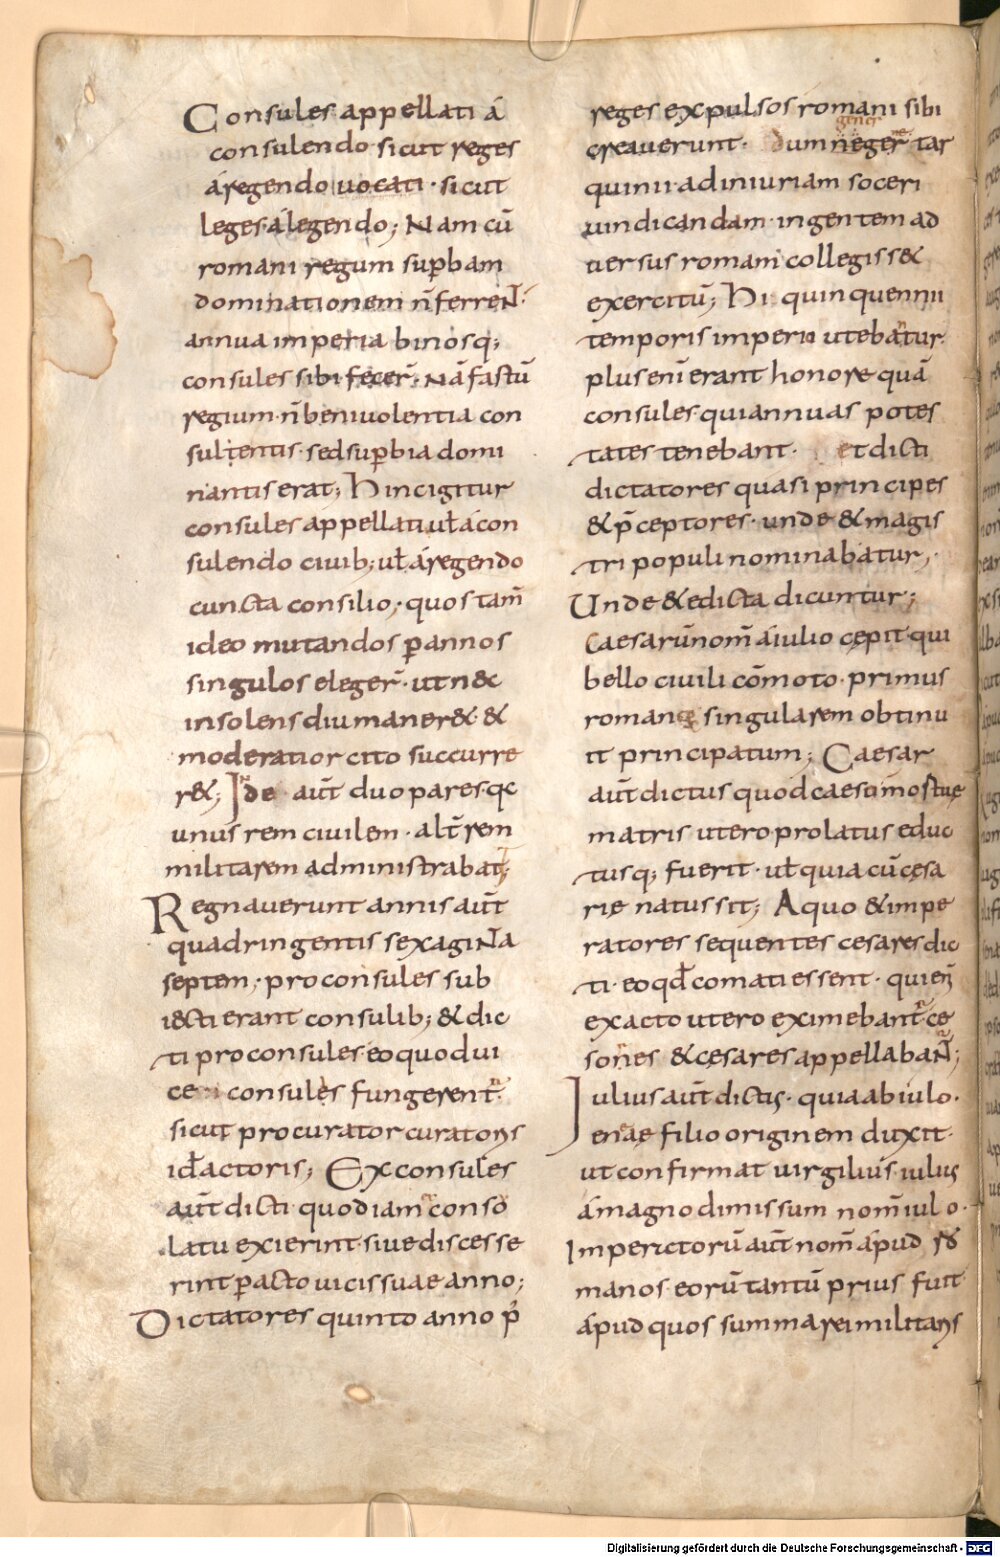 Consules appellati á
consulendo sicut reges
áregendo uocati · sicut
leges álegendo; Nam cū
romani regum sup̄bam
dominationem n̄ ferreNt·
annua imperia binosq;
consules sibi fecer̄; Nā fastū
regium · n̄ beniuolentia con
sulentis · sed sup̄bia domi
nantis erat; Hinc igitur
consules appellati ul̄ ácon
sulendo ciuib; ul̄ áregendo
cuncta consilio; quos tam̄
ideo mutandos p̄ annos
singulos eleger̄ · ut n&
insolens diu maner& &
moderatior cito succurre
r&; Inde aut̄ duo pares qc
unus rem ciuilem · alt̄ rem
militarem administrabat;
Regnauerunt annis aut̄
quadringentis sexagiNta
septem; proconsules sub
iecti erant consulib; & dic
ti proconsules eo quod ui
ce consules fungerent̄
sicut procurator curatoris
id ł actoris; Exconsules
aut̄ dicti quod iam conso
latu exierint siue discesse
rint p̄acto uicis suae anno;
Dictatores quinto anno p̄
reges expulsos romani sibi
creauerunt · dum neger tar
gener
quinii ad iniuriam soceri
uindicandam · ingentem ad
uersus romam collegiss&
exercitū; Hi quinquennii
temporis imperio utebatur
plus eni erant honore quā
consules qui annuas potes
tates tenebant · et dicti
dictatores quasi principes
& p̄ceptores · unde & magis
tri populi nominabatur;
Unde & edicta dicuntur;
Caesarū nom̄ á iulio cępit qui
bello ciuili cōmoto · primus
romanę singularem obtinu
it principatum; Caesar
aut̄ dictus quod caeso mortue
matris utero prolatus educ
tusq; fuerit · ul̄ quia cū cęsa
rię natus sit; A quo & impe
ratores sequentes cesares dic
ti · eo qd̄ comati essent · qui en̄
exacto utero eximebant̄ ce
sones & cesares appellabaNt̄;
Iulius aut̄ dictus · quia ab iulo ·
eneae filio originem duxit ·
ut confirmat uirgilius iulius
ámagno dimissum nom̄ iulo ·
Imperictorū aut̄ nom̄ ápud ro
manos eorū tantū prius fuit
ápud quos summa rei militaris
Digitalisierung gefördert durch die Deutsche Forschungsgemeinschaft - DFG